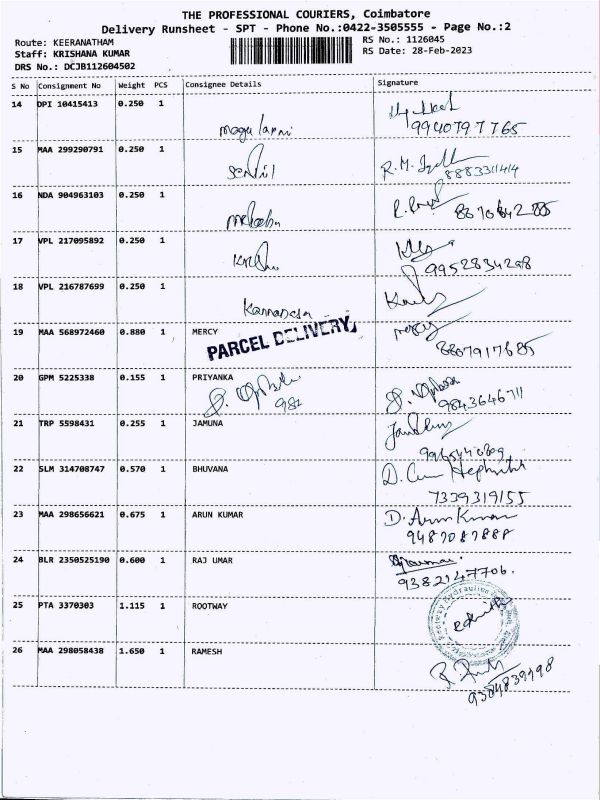 THE PROFESSIONAL COURIERS, Coimbatore
Delivery Runsheet - SPT - Phone No.:0422-3505555 - Page No.:2
Route: KEERANATHAM RS No.: 1126045
Staff: KRISHANA KUMAR RS Date: 28-Feb-2023
DRS No.: DCJB112604502
S No Consignment No Weight PCS Consignee Details Signature
14 DPI 10415413 0.250 1
9940797765
15 MAA 299290791 0.250 1
8883311414
16 NDA 904963103 0.250 1
17 VPL 217095892 0.250 1
9952834298
18 VPL 216787699 0.250 1
19 MAA 568972460 0.880 1 MERCY mercy
PARCEL DELIVERY
8807917685
20 GPM 5225338 0.155 1 PRIYANKA
982 9843646711
21 TRP 5598431 0.255 1 JAMUNA
22 SLM 314708747 0.570 1 BHUVANA
7339319155
23 MAA 298656621 0.675 1 ARUN KUMAR D. Arun Kumar
9487087888
24 BLR 2350525190 0.600 1 RAJ UMAR
9382147706.
25 PTA 3370303 1.115 1 ROOTWAY
26 MAA 298058438 1.650 1 RAMESH